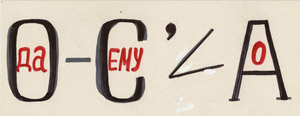 О да - С ему ’ < А о